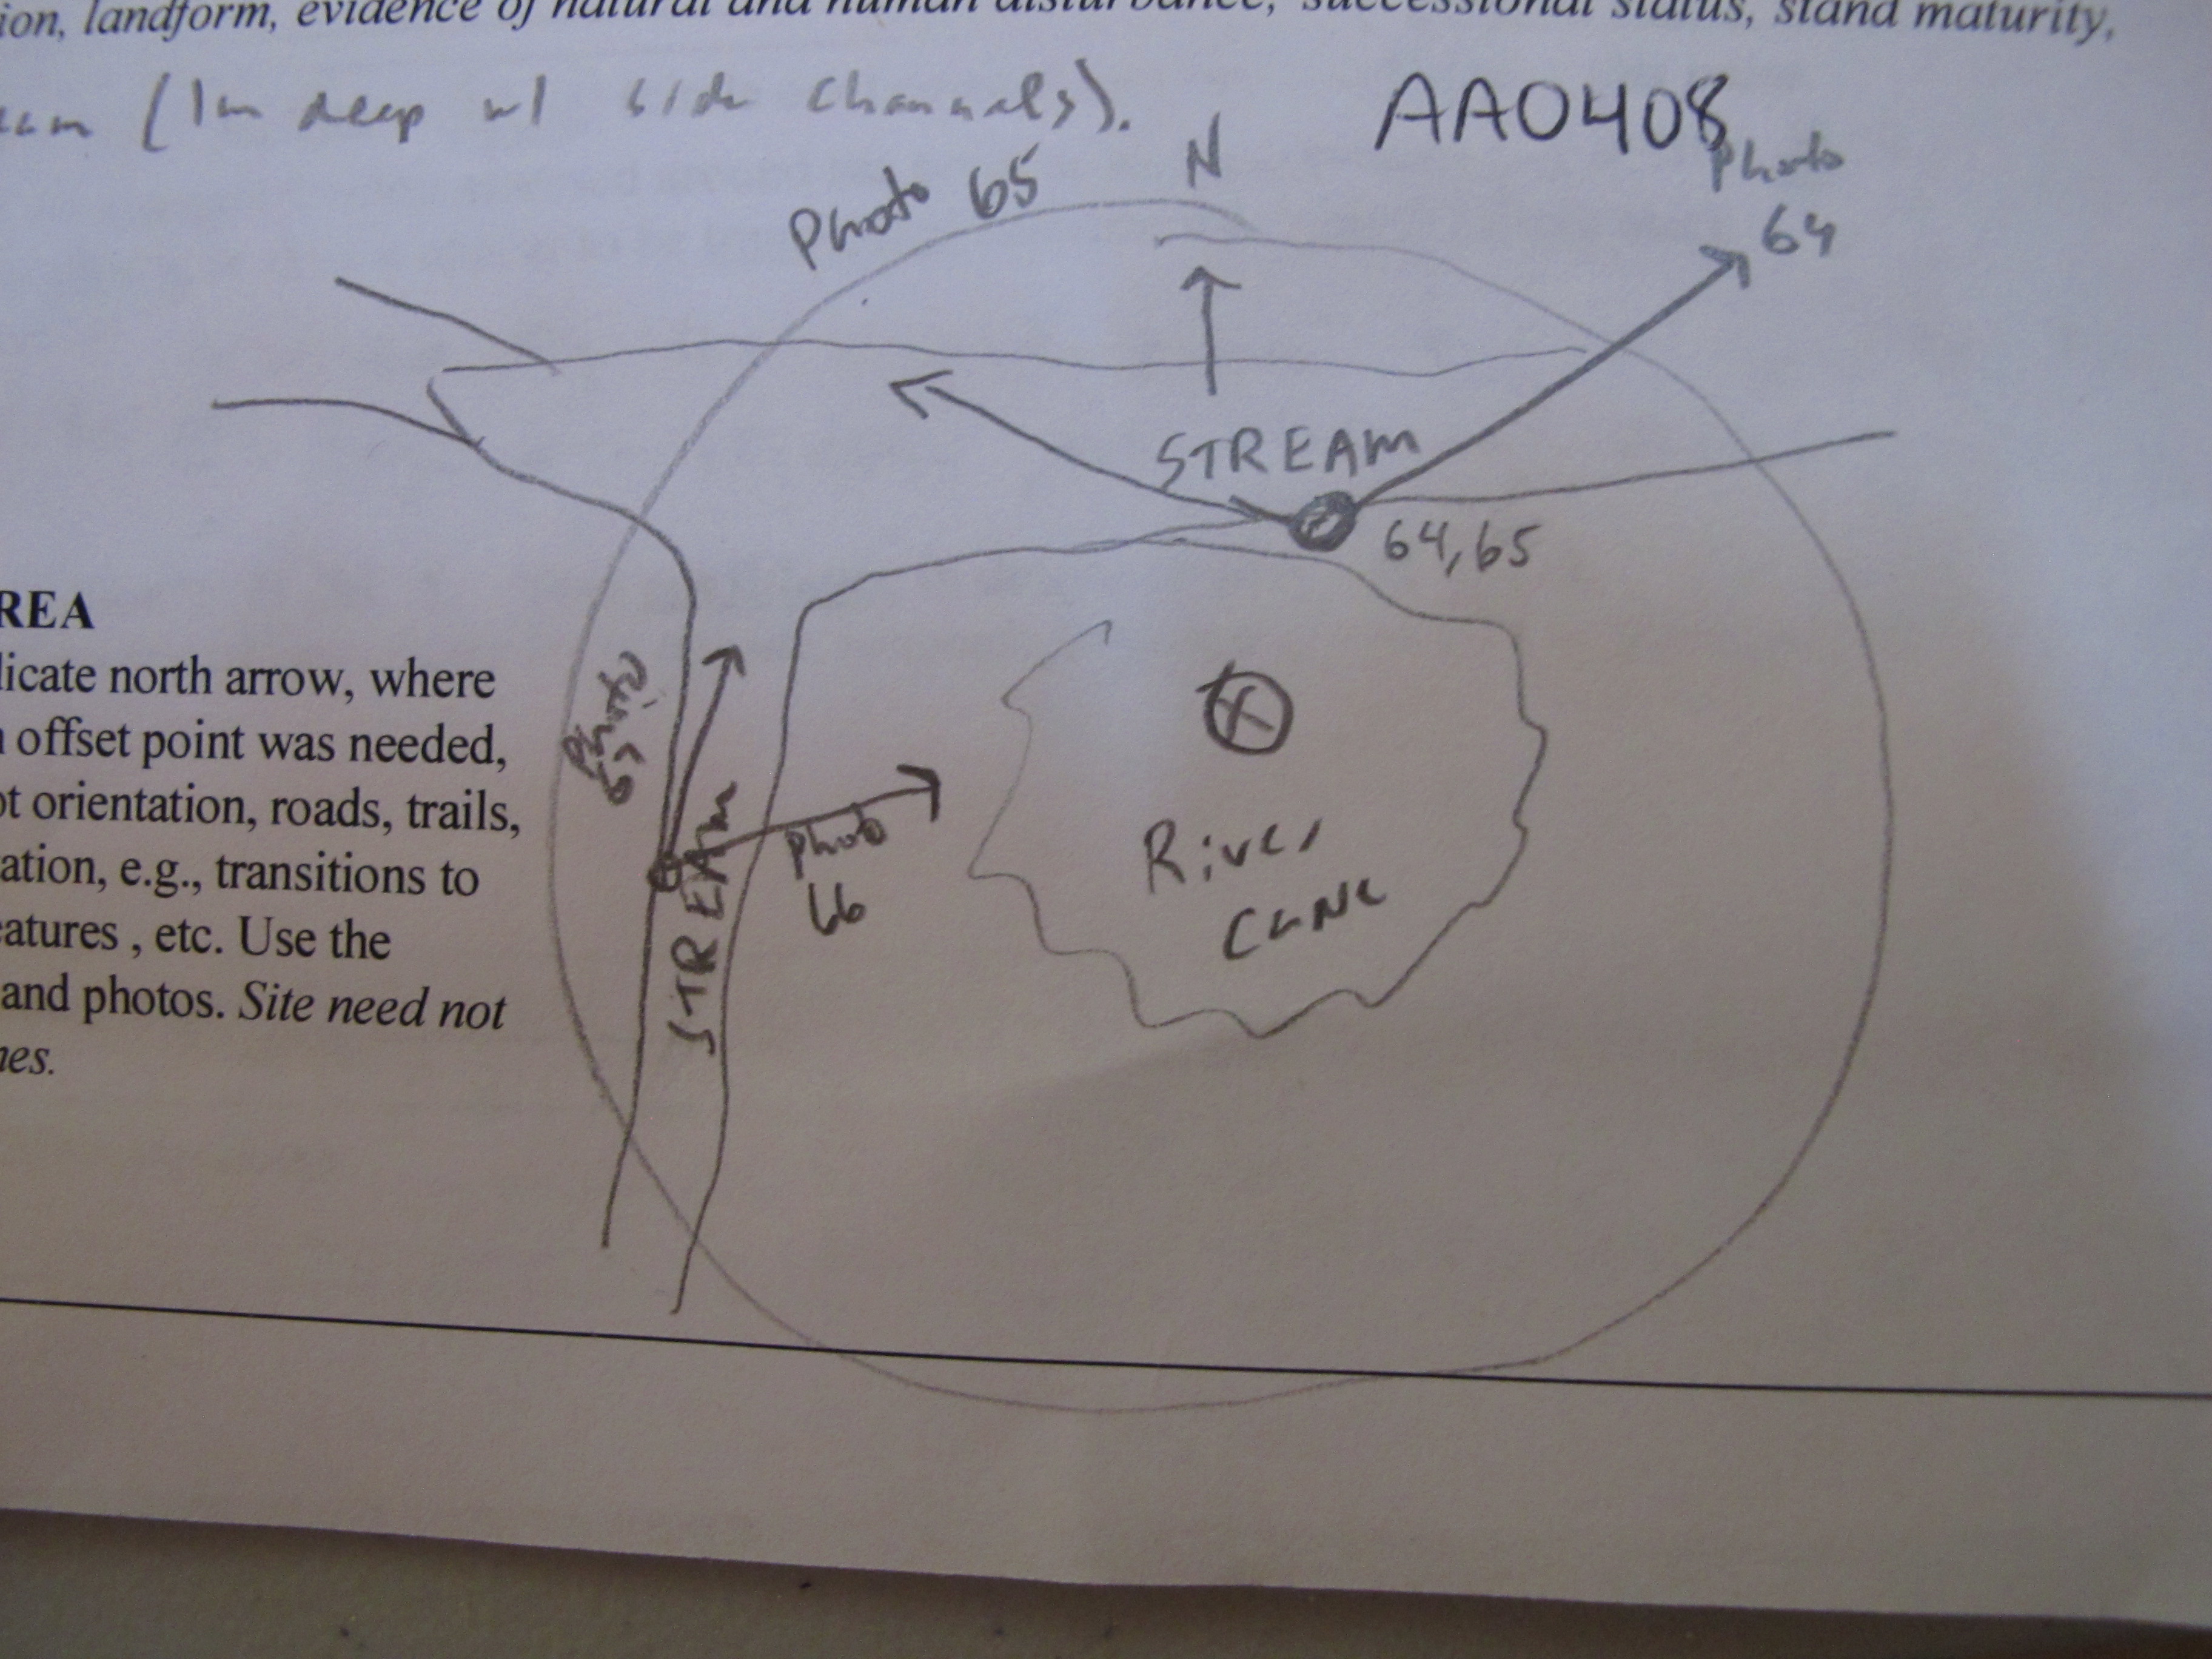 ion, landform, evidence of natural and human disturbance, successional status, stand maturity,
(1m deep w/ side channels).
AA0408
Photo 65
N
Photo
64
STREAM
64,65
REA
dicate north arrow, where
offset point was needed,
ot orientation, roads, trails,
ation, e.g., transitions to
eatures, etc. Use the
and photos. Site need not
nes.
Photo
STREAM
Photo
66
River
Cane